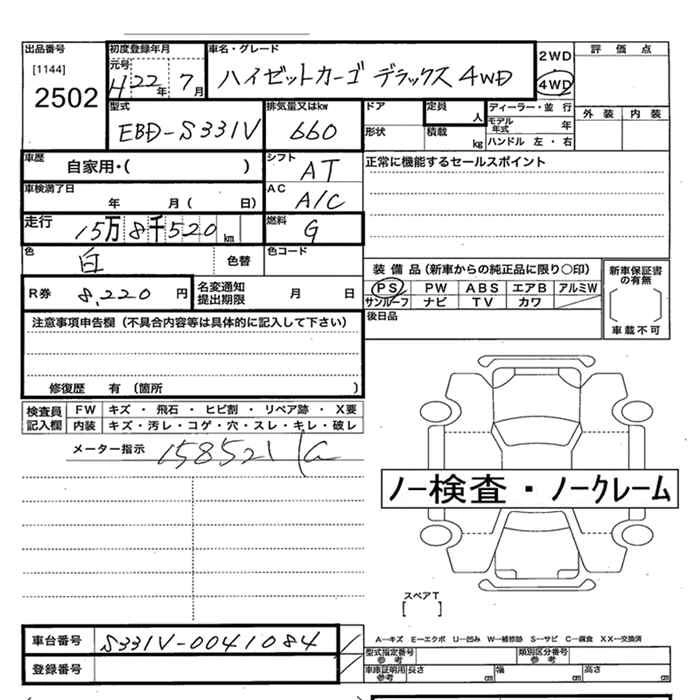 出品番号
[1144]
2502
初度登録年月
元号
H22年 7月
車名・グレード
ハイゼットカーゴ デラックス 4WD
2WD
4WD
評価点
外装 内装
型式
EBD-S331V
排気量又はkw
660
ドア
形状
定員 人
積載 kg
ディーラー・並行
モデル年式 年
ハンドル 左・右
車歴
自家用・( )
シフト
AT
正常に機能するセールスポイント
車検満了日
年 月( 日)
AC
A/C
走行
15万8千520km
燃料
G
色
白
色替
色コード
R券 8,220円
名変通知
提出期限
月 日
装備品(新車からの純正品に限り○印)
PS PW ABS エアB アルミW
サンルーフ ナビ TV カワ
新車保証書の有無
[ ]
車載不可
後日品
注意事項申告欄(不具合内容等は具体的に記入して下さい)
修復歴 有(箇所 )
検査員記入欄
FW キズ・飛石・ヒビ割・リペア跡・X要
内装 キズ・汚レ・コゲ・穴・スレ・キレ・破レ
メーター指示
158521
ノー検査・ノークレーム
スペアT
[ ]
車台番号 S331V-0041084
登録番号
A―キズ E―エクボ U―凹み W―補修跡 S―サビ C―腐食 XX―交換済
型式指定番号
参考
類別区分番号
参考
車庫証明用
参考
長さ cm 幅 cm 高さ cm